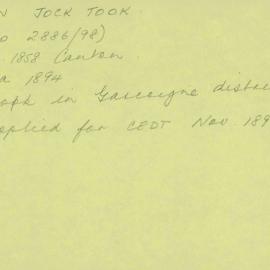 N JOCK TOOK
O 2886/98)
. 1858 Canton
a 1894
ook in Gascoigne distric
pplied for CEDT Nov 189